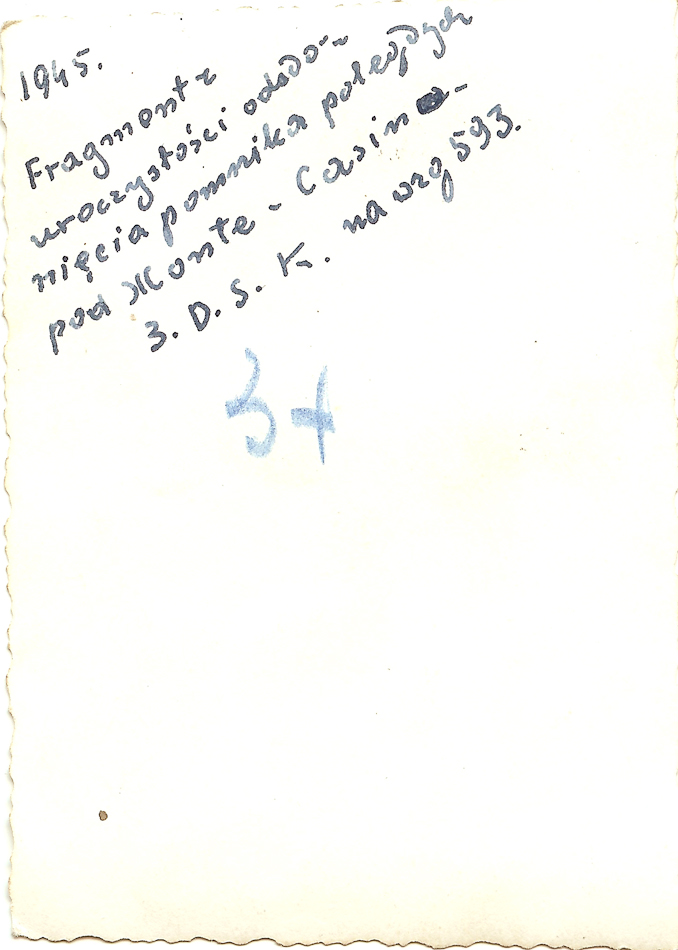 1945.
Fragment z
uroczystości odsło-
nięcia pomnika poległych
pod Monte - Casino-
3. D. S. K. na wzg 593.
34